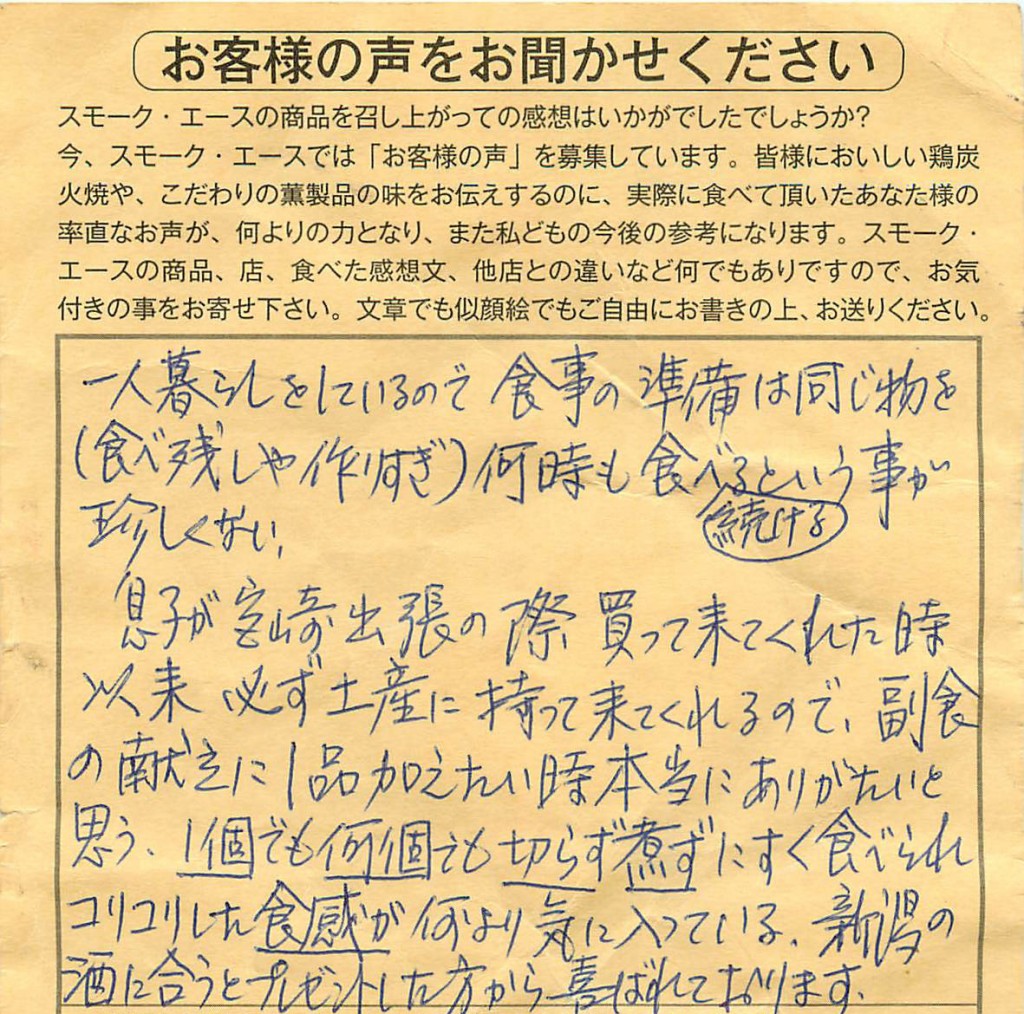 お客様の声をお聞かせください
スモーク・エースの商品を召し上がっての感想はいかがでしたでしょうか?
今、スモーク・エースでは「お客様の声」を募集しています。皆様においしい鶏炭
火焼や、こだわりの薫製品の味をお伝えするのに、実際に食べて頂いたあなた様の
率直なお声が、何よりの力となり、また私どもの今後の参考になります。スモーク・
エースの商品、店、食べた感想文、他店との違いなど何でもありですので、お気
付きの事をお寄せ下さい。文章でも似顔絵でもご自由にお書きの上、お送りください。
一人暮らしをしているので食事の準備は同じ物を
(食べ残しや作りすぎ)何時も食べるという事が
続ける
珍しくない。
息子が宮崎出張の際買って来てくれた時
以来必ず土産に持って来てくれるので、副食
の献立に1品加えたい時本当にありがたいと
思う、1個でも何個でも切らず煮ずにすぐ食べられ
コリコリした食感が何より気に入っている、新潟の
酒に合うとプレゼントした方から喜ばれております。